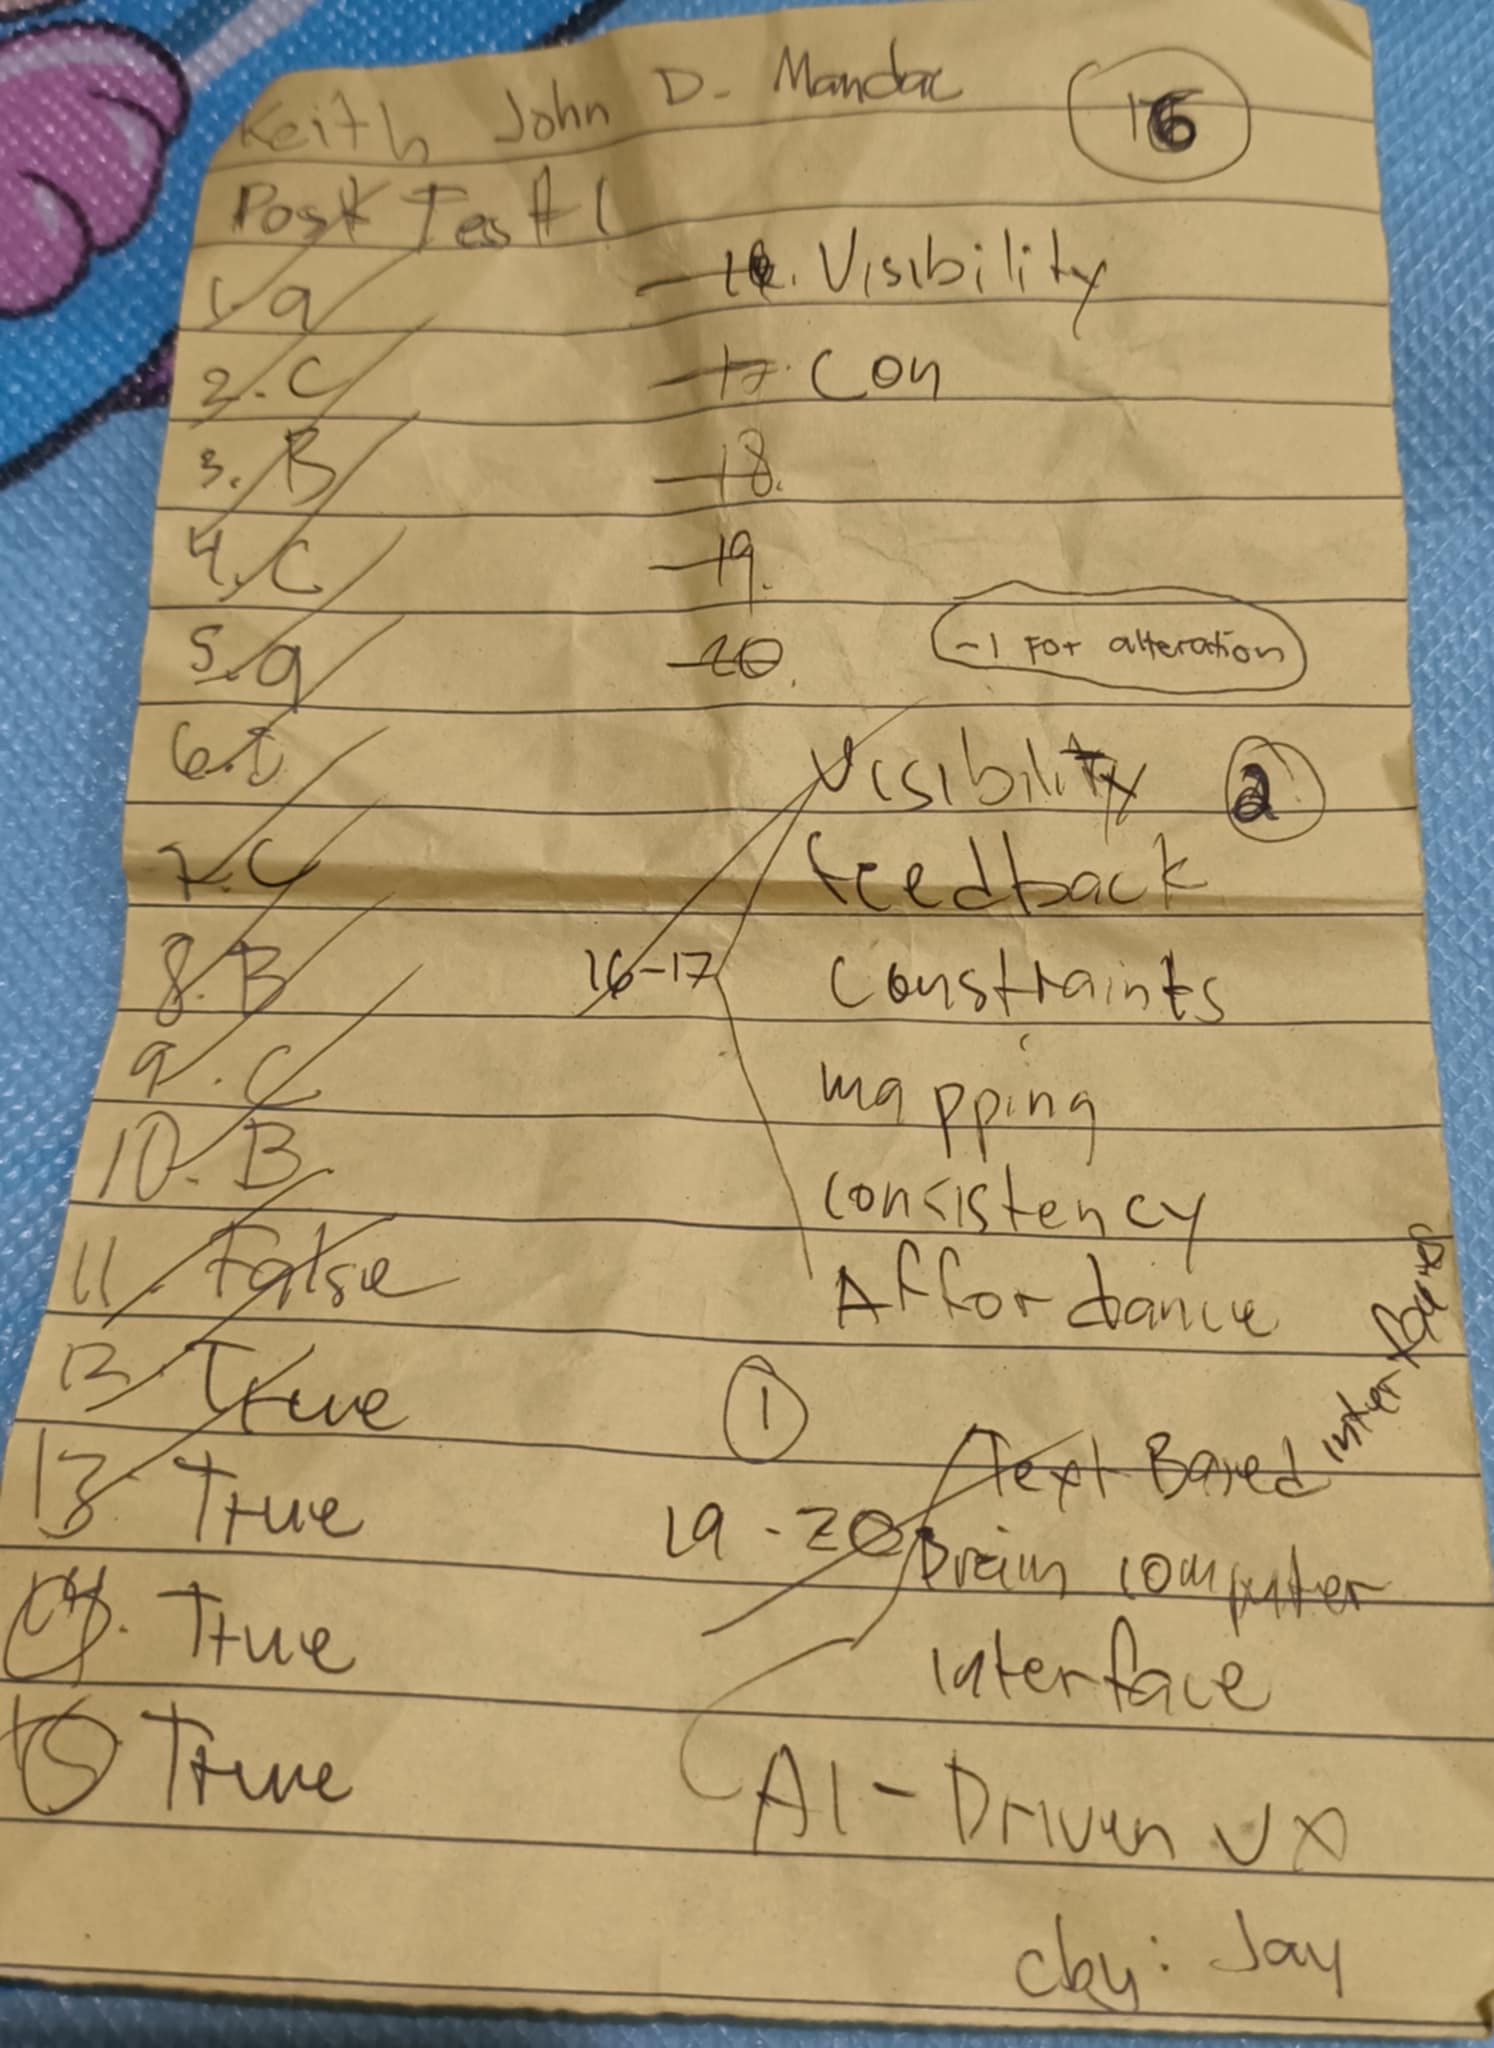 Keith John D. Mandac
16
Post Test 1
1. a
2. C
3. B
4. C
5. a
6.
7. C
8. B
9. C
10. B
11. False
12. True
13. True
14. True
15 True
16. Visibility
17. Con
18.
19.
20.
-1 For alteration
Visibility
2
feedback
16-17
Constraints
mapping
consistency
Affordance
1
Text Based interfaces
19-20
Brain computer
interface
AI-Driven UX
cby: Jay